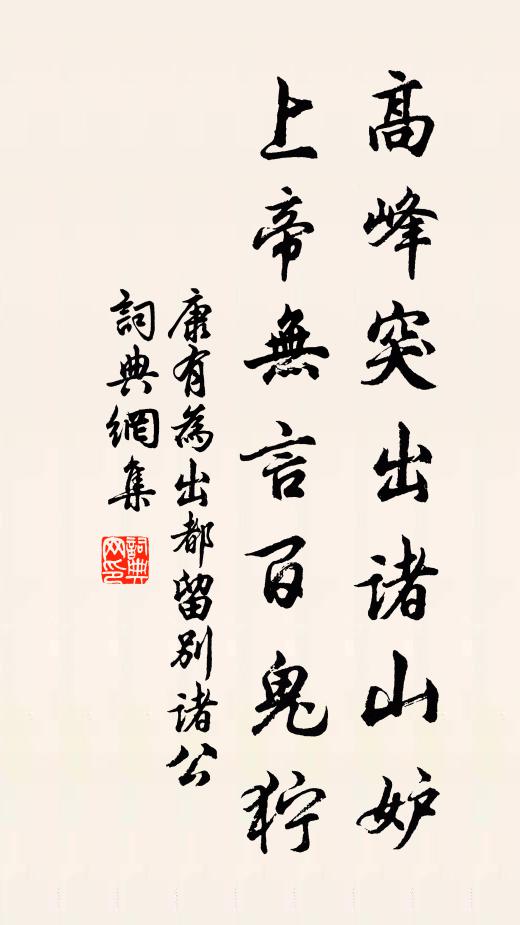 高峰突出諸山妒
上帝無言百鬼狞
康有為出都留别諸公
詞典網集
詞典网印